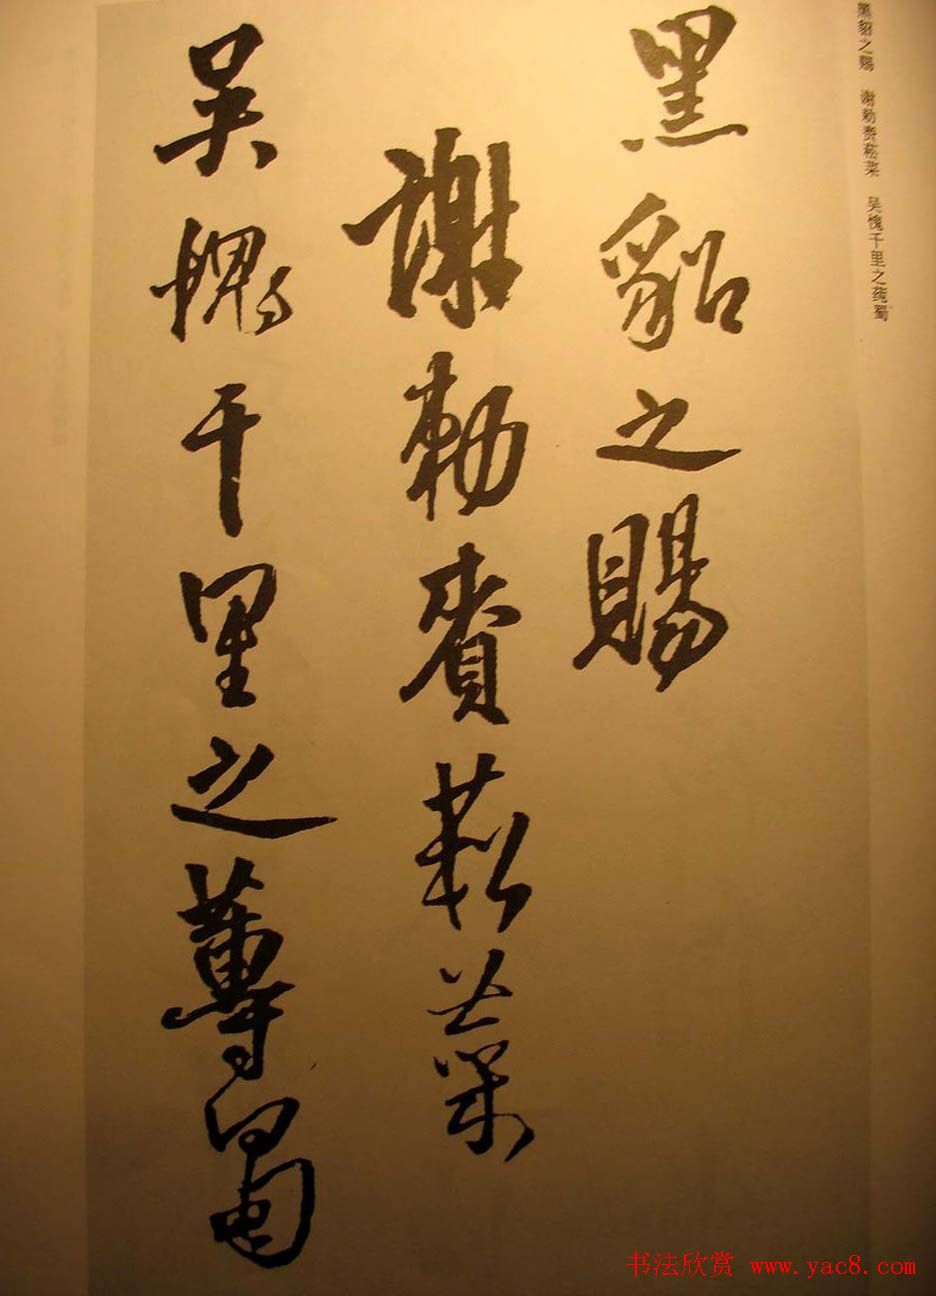 黑貂之赐　谢勑赉菘菜　吴愧千里之莼蜀
黑貂之賜
謝勑賚菘菜
吴愧千里之蓴蜀
书法欣赏 www.yac8.com